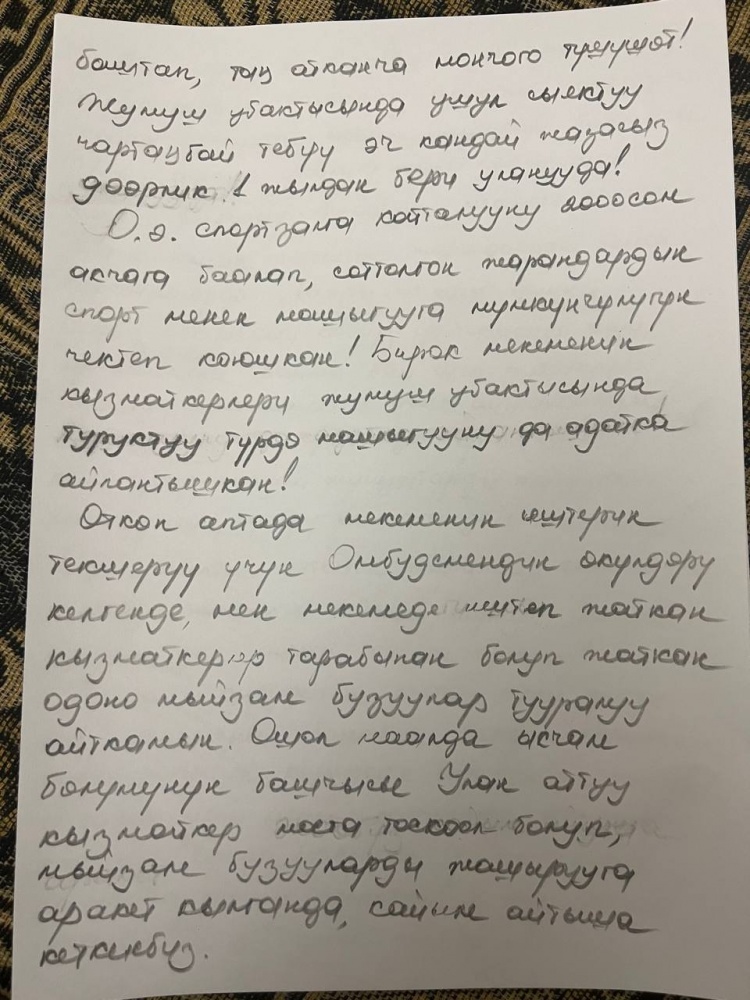 баштап, таң атканча мончого түшүшөт!
Жумуш убактысында ушул сыяктуу
чартаңбай тебүү эч кандай жазасыз
дээрлик 1 жылдан бери уланууда!
О.э. спортзалга катталууну 2000сом
акчага баалап, соттолгон жарандардын
спорт менен машыгууга мүмкүнчүлүгүн
чектеп коюшкан! Бирок мекеменин
кызматкерлери жумуш убактысында
туруктуу түрдө машыгууну да адатка
айлантышкан!
Өткөн аптада мекеменин иштерин
текшерүү үчүн Омбудсмендин өкүлдөрү
келгенде, мен мекемеде иштеп жаткан
кызматкерлер тарабынан болуп жаткан
одоно мыйзам бузуулар тууралуу
айткамын. Ошол маалда ыкчам
бөлүмүнүн башчысы Улан аттуу
кызматкер жаста тоскоол болуп,
мыйзам бузууларды жашырууга
аракет кылганда, айтыша
кеткенбиз.